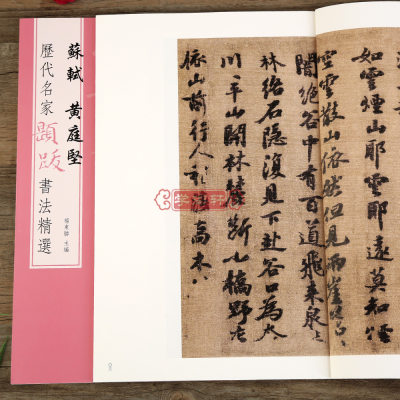 蘇軾 黃庭堅
歷代名家題跋書法精選
主編
如雲煙山耶雲耶遠莫知煙
空雲散山依然但見兩崖
闇絕谷中有百道飛來泉
林絡石隱復見下赴谷口為
川平山開林麓斷小橋野店
依山前行人 喬木